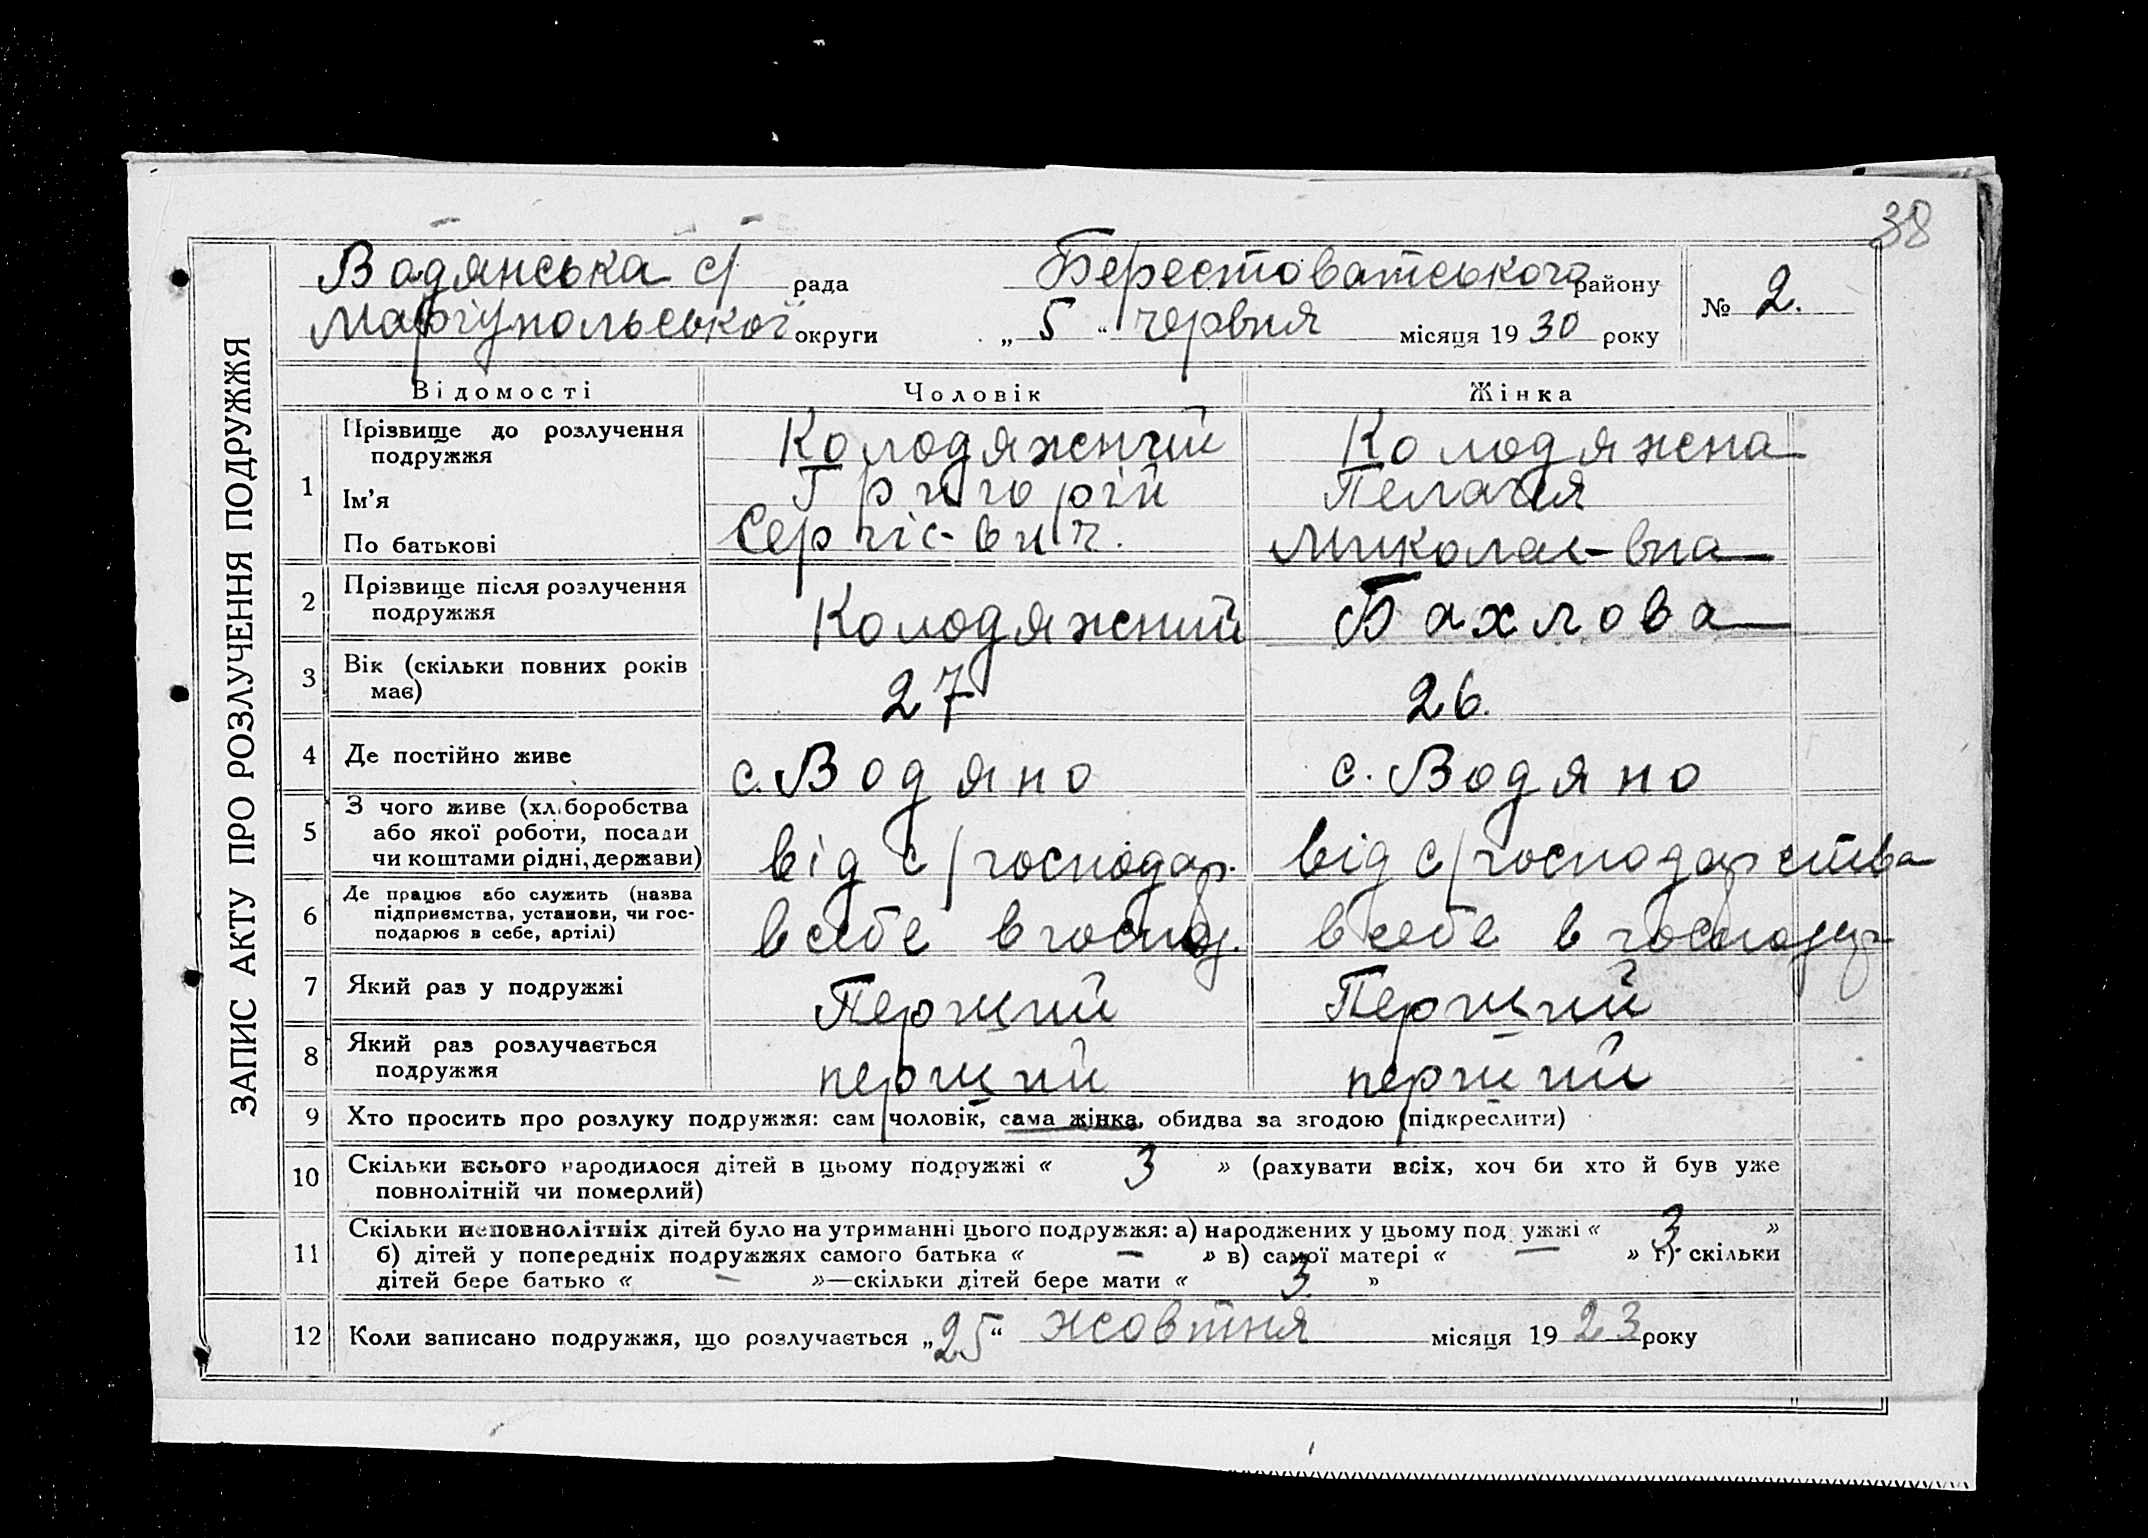 38
Водянська с/ рада Берестоватського району № 2.
Маріупольської округи „ 5 “ червня місяця 19 30 року
ЗАПИС АКТУ ПРО РОЗЛУЧЕННЯ ПОДРУЖЖЯ
Відомості Чоловік Жінка
1 Прізвище до розлучення подружжя Колодяжний Колодяжна
Ім’я Григорій Пелагія
По батькові Сергіє-вич. Миколає-вна
2 Прізвище після розлучення подружжя Колодяжний Бахлова
3 Вік (скільки повних років має) 27 26.
4 Де постійно живе с. Водяно с. Водяно
5 З чого живе (хліборобства
або якої роботи, посади
чи коштами рідні, держави) від с/господар. від с/господарства
6 Де працює або служить (назва
підприємства, установи, чи гос-
подарює в себе, артілі) в себе в господ. в себе в господар
7 Який раз у подружжі Перший Перший
8 Який раз розлучається подружжя перший перший
9 Хто просить про розлуку подружжя: сам чоловік, сама жінка, обидва за згодою (підкреслити)
10 Скільки всього народилося дітей в цьому подружжі « 3 » (рахувати всіх, хоч би хто й був уже
повнолітній чи померлий)
11 Скільки неповнолітніх дітей було на утриманні цього подружжя: а) народжених у цьому подружжі « 3 »
б) дітей у попередніх подружжях самого батька « — » в) самої матері « — » г) скільки
дітей бере батько « — »—скільки дітей бере мати « 3 »
12 Коли записано подружжя, що розлучається „ 25 “ жовтня місяця 19 23 року